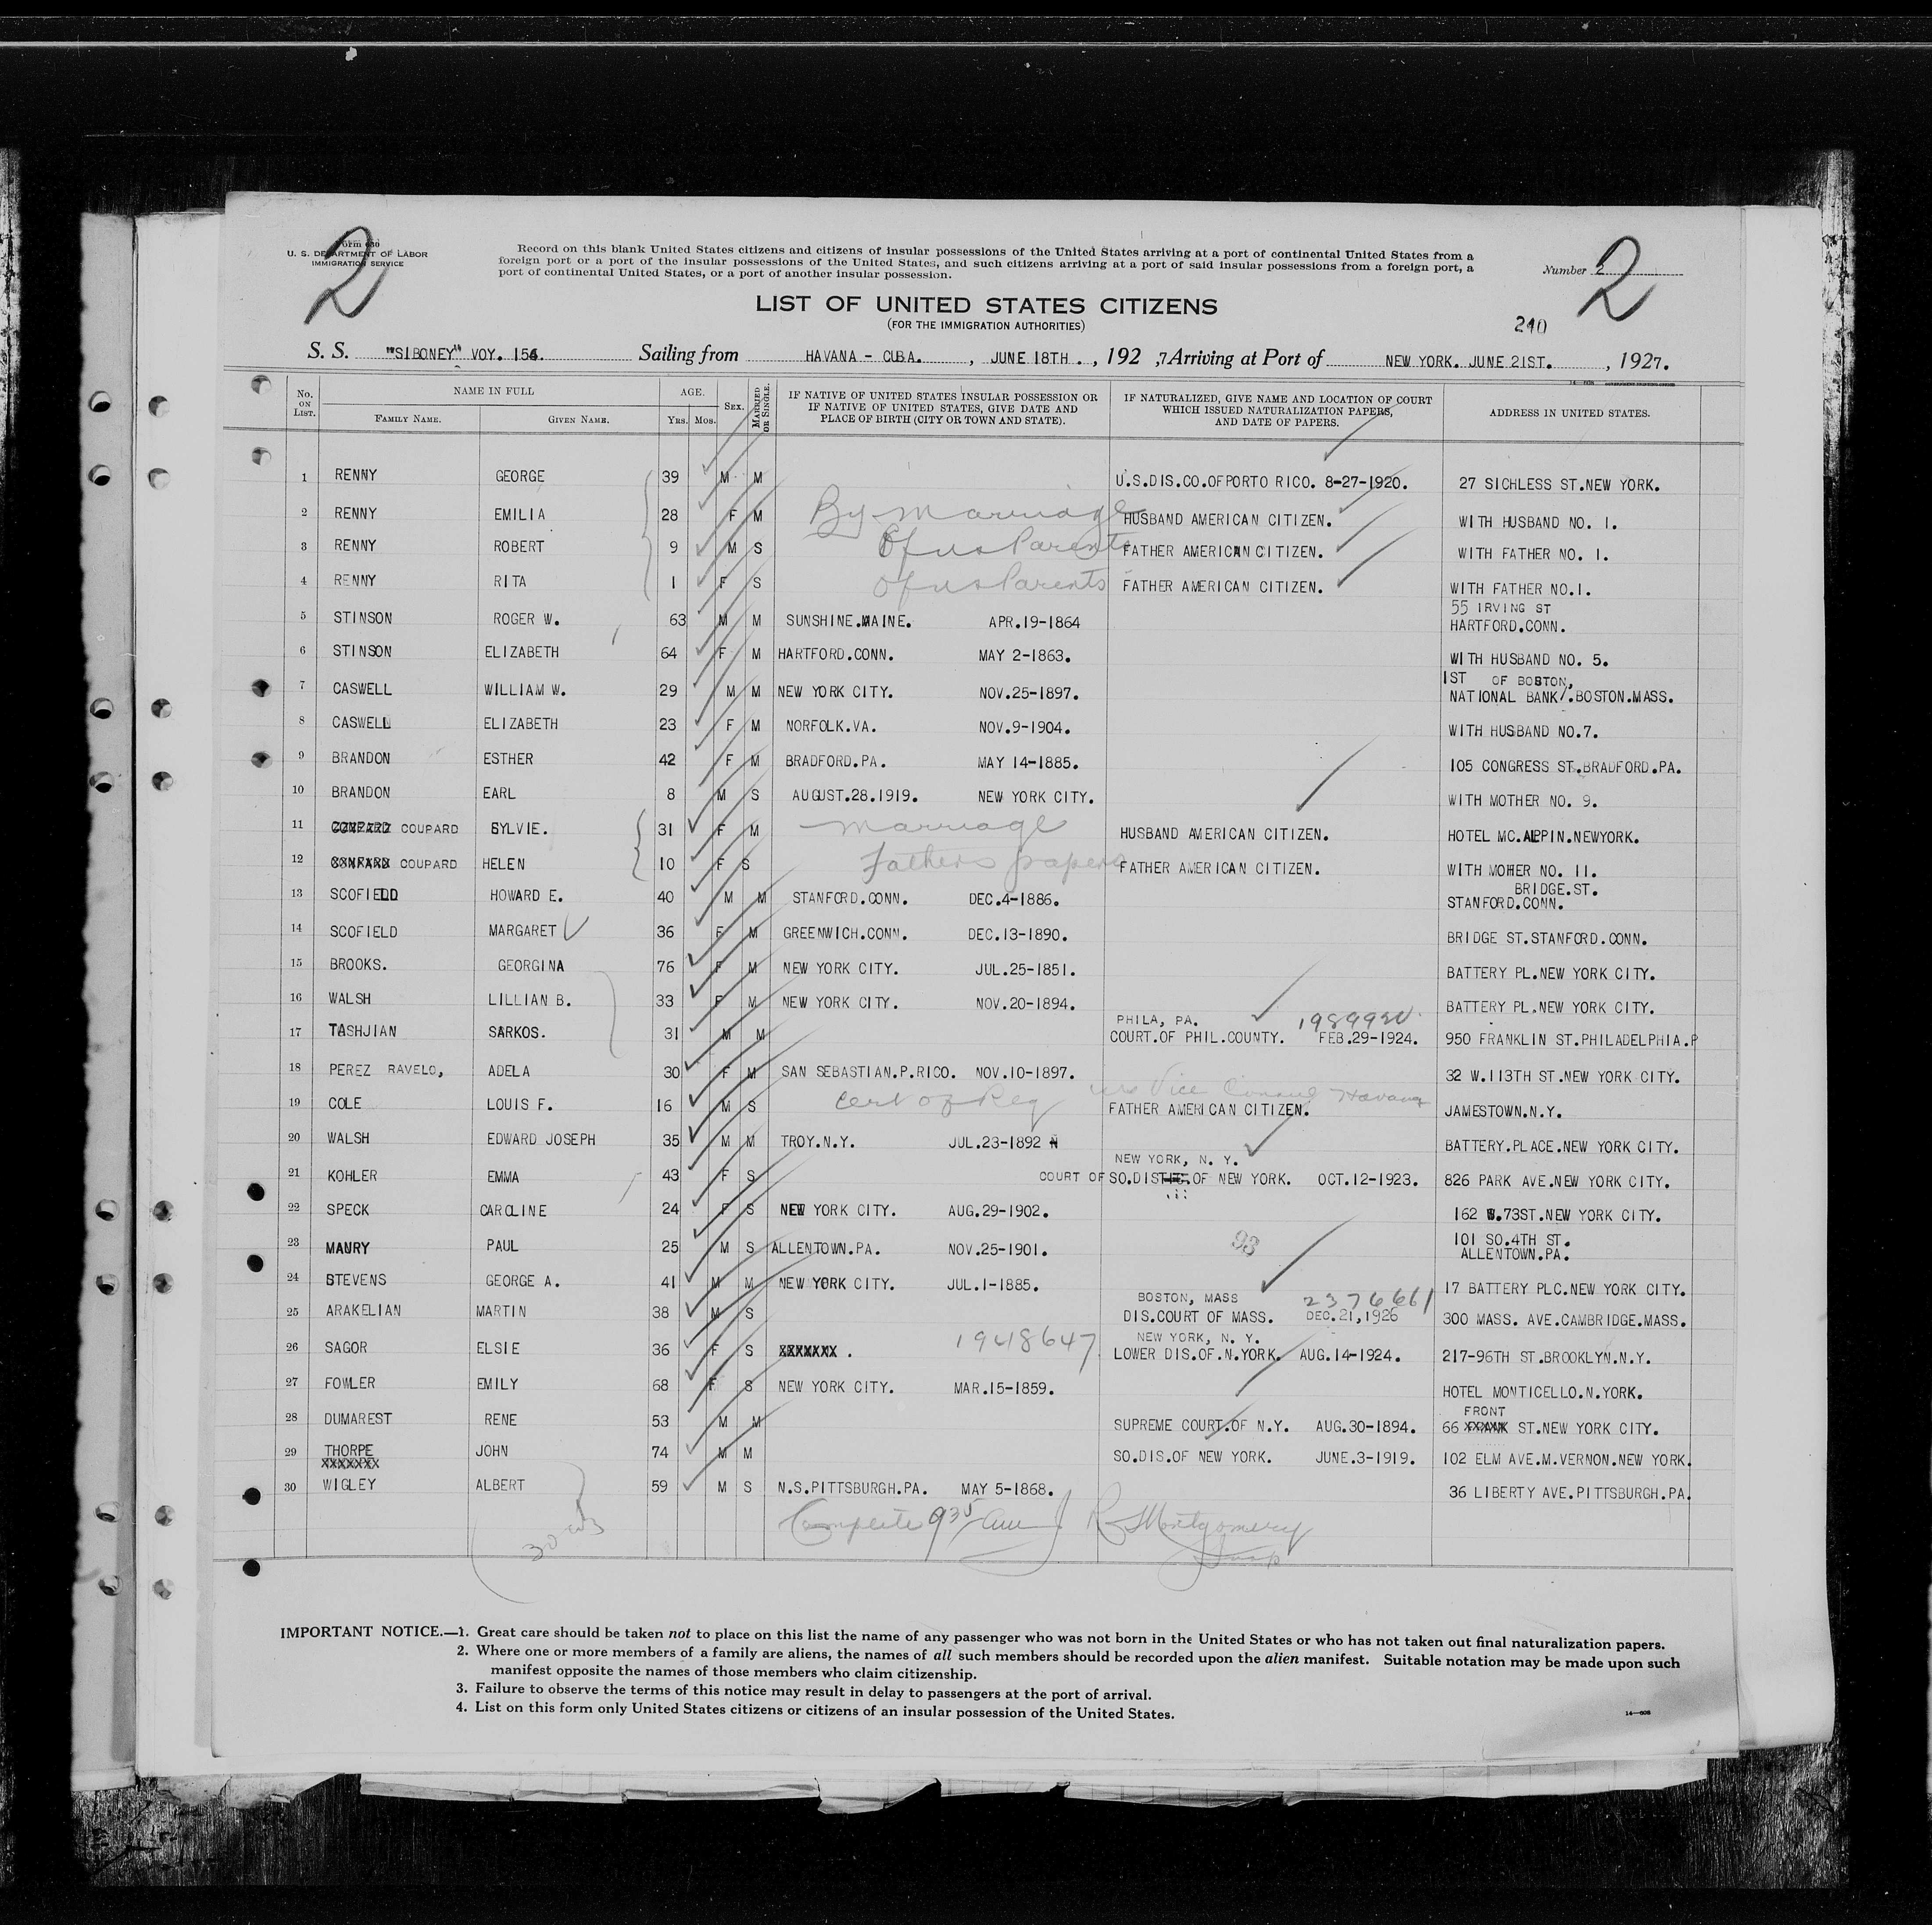 2
Form 630
U. S. DEPARTMENT OF LABOR
IMMIGRATION SERVICE
Record on this blank United States citizens and citizens of insular possessions of the United States arriving at a port of continental United States from a
foreign port or a port of the insular possessions of the United States, and such citizens arriving at a port of said insular possessions from a foreign port, a
port of continental United States, or a port of another insular possession.
Number 2
2
LIST OF UNITED STATES CITIZENS
(FOR THE IMMIGRATION AUTHORITIES)
240
S. S. "SIBONEY" VOY. 154. Sailing from HAVANA - CUBA. , JUNE 18TH. , 192 ,7 Arriving at Port of NEW YORK. JUNE 21ST. , 1927.
No. ON LIST. NAME IN FULL FAMILY NAME. GIVEN NAME. AGE. YRS. MOS. SEX. MARRIED OR SINGLE. IF NATIVE OF UNITED STATES INSULAR POSSESSION OR IF NATIVE OF UNITED STATES, GIVE DATE AND PLACE OF BIRTH (CITY OR TOWN AND STATE). IF NATURALIZED, GIVE NAME AND LOCATION OF COURT WHICH ISSUED NATURALIZATION PAPERS, AND DATE OF PAPERS. ADDRESS IN UNITED STATES.
1 RENNY GEORGE 39 M M U.S.DIS.CO.OFPORTO RICO. 8-27-1920. 27 SICHLESS ST.NEW YORK.
2 RENNY EMILIA 28 F M By marriage HUSBAND AMERICAN CITIZEN. WITH HUSBAND NO. 1.
3 RENNY ROBERT 9 M S Of us Parents FATHER AMERICAN CITIZEN. WITH FATHER NO. 1.
4 RENNY RITA 1 F S Of us Parents FATHER AMERICAN CITIZEN. WITH FATHER NO.1.
5 STINSON ROGER W. 63 M M SUNSHINE.MAINE. APR.19-1864 55 IRVING ST HARTFORD.CONN.
6 STINSON ELIZABETH 64 F M HARTFORD.CONN. MAY 2-1863. WITH HUSBAND NO. 5.
7 CASWELL WILLIAM W. 29 M M NEW YORK CITY. NOV.25-1897. 1ST OF BOSTON, NATIONAL BANK/.BOSTON.MASS.
8 CASWELL ELIZABETH 23 F M NORFOLK.VA. NOV.9-1904. WITH HUSBAND NO.7.
9 BRANDON ESTHER 42 F M BRADFORD.PA. MAY 14-1885. 105 CONGRESS ST.BRADFORD.PA.
10 BRANDON EARL 8 M S AUGUST.28.1919. NEW YORK CITY. WITH MOTHER NO. 9.
11 COUPARD SYLVIE. 31 F M marriage HUSBAND AMERICAN CITIZEN. HOTEL MC.ALPIN.NEWYORK.
12 COUPARD HELEN 10 F S Fathers papers FATHER AMERICAN CITIZEN. WITH MOHER NO. 11.
13 SCOFIELD HOWARD E. 40 M M STANFORD.CONN. DEC.4-1886. BRIDGE.ST. STANFORD.CONN.
14 SCOFIELD MARGARET 36 F M GREENWICH.CONN. DEC.13-1890. BRIDGE ST.STANFORD.CONN.
15 BROOKS. GEORGINA 76 F M NEW YORK CITY. JUL.25-1851. BATTERY PL.NEW YORK CITY.
16 WALSH LILLIAN B. 33 F M NEW YORK CITY. NOV.20-1894. BATTERY PL.NEW YORK CITY.
17 TASHJIAN SARKOS. 31 M M PHILA, PA. COURT.OF PHIL.COUNTY. FEB.29-1924. 950 FRANKLIN ST.PHILADELPHIA.P
18 PEREZ RAVELO, ADELA 30 F M SAN SEBASTIAN.P.RICO. NOV.10-1897. 32 W.113TH ST.NEW YORK CITY.
19 COLE LOUIS F. 16 M S Cert of Reg us Vice Consul Havana FATHER AMERICAN CITIZEN. JAMESTOWN.N.Y.
20 WALSH EDWARD JOSEPH 35 M M TROY.N.Y. JUL.23-1892 N BATTERY.PLACE.NEW YORK CITY.
21 KOHLER EMMA 43 F S NEW YORK, N. Y. COURT OF SO.DIST.OF NEW YORK. OCT.12-1923. 826 PARK AVE.NEW YORK CITY.
22 SPECK CAROLINE 24 F S NEW YORK CITY. AUG.29-1902. 162 W.73ST.NEW YORK CITY.
23 MAURY PAUL 25 M S ALLENTOWN.PA. NOV.25-1901. 93 101 SO.4TH ST. ALLENTOWN.PA.
24 STEVENS GEORGE A. 41 M M NEW YORK CITY. JUL.1-1885. 17 BATTERY PLC.NEW YORK CITY.
25 ARAKELIAN MARTIN 38 M S BOSTON, MASS 2376661 DIS.COURT OF MASS. DEC.21,1926 300 MASS. AVE.CAMBRIDGE.MASS.
26 SAGOR ELSIE 36 F S XXXXXXX . 1948647 NEW YORK, N. Y. LOWER DIS.OF.N.YORK. AUG.14-1924. 217-96TH ST.BROOKLYN.N.Y.
27 FOWLER EMILY 68 F S NEW YORK CITY. MAR.15-1859. HOTEL MONTICELLO.N.YORK.
28 DUMAREST RENE 53 M M SUPREME COURT.OF N.Y. AUG.30-1894. FRONT 66 XXXXX ST.NEW YORK CITY.
29 THORPE XXXXXXX JOHN 74 M M SO.DIS.OF NEW YORK. JUNE.3-1919. 102 ELM AVE.M.VERNON.NEW YORK.
30 WIGLEY ALBERT 59 M S N.S.PITTSBURGH.PA. MAY 5-1868. 36 LIBERTY AVE.PITTSBURGH.PA.
Complete 935 am J R Montgomery
30
IMPORTANT NOTICE.—1. Great care should be taken not to place on this list the name of any passenger who was not born in the United States or who has not taken out final naturalization papers.
2. Where one or more members of a family are aliens, the names of all such members should be recorded upon the alien manifest. Suitable notation may be made upon such
manifest opposite the names of those members who claim citizenship.
3. Failure to observe the terms of this notice may result in delay to passengers at the port of arrival.
4. List on this form only United States citizens or citizens of an insular possession of the United States.
14—608